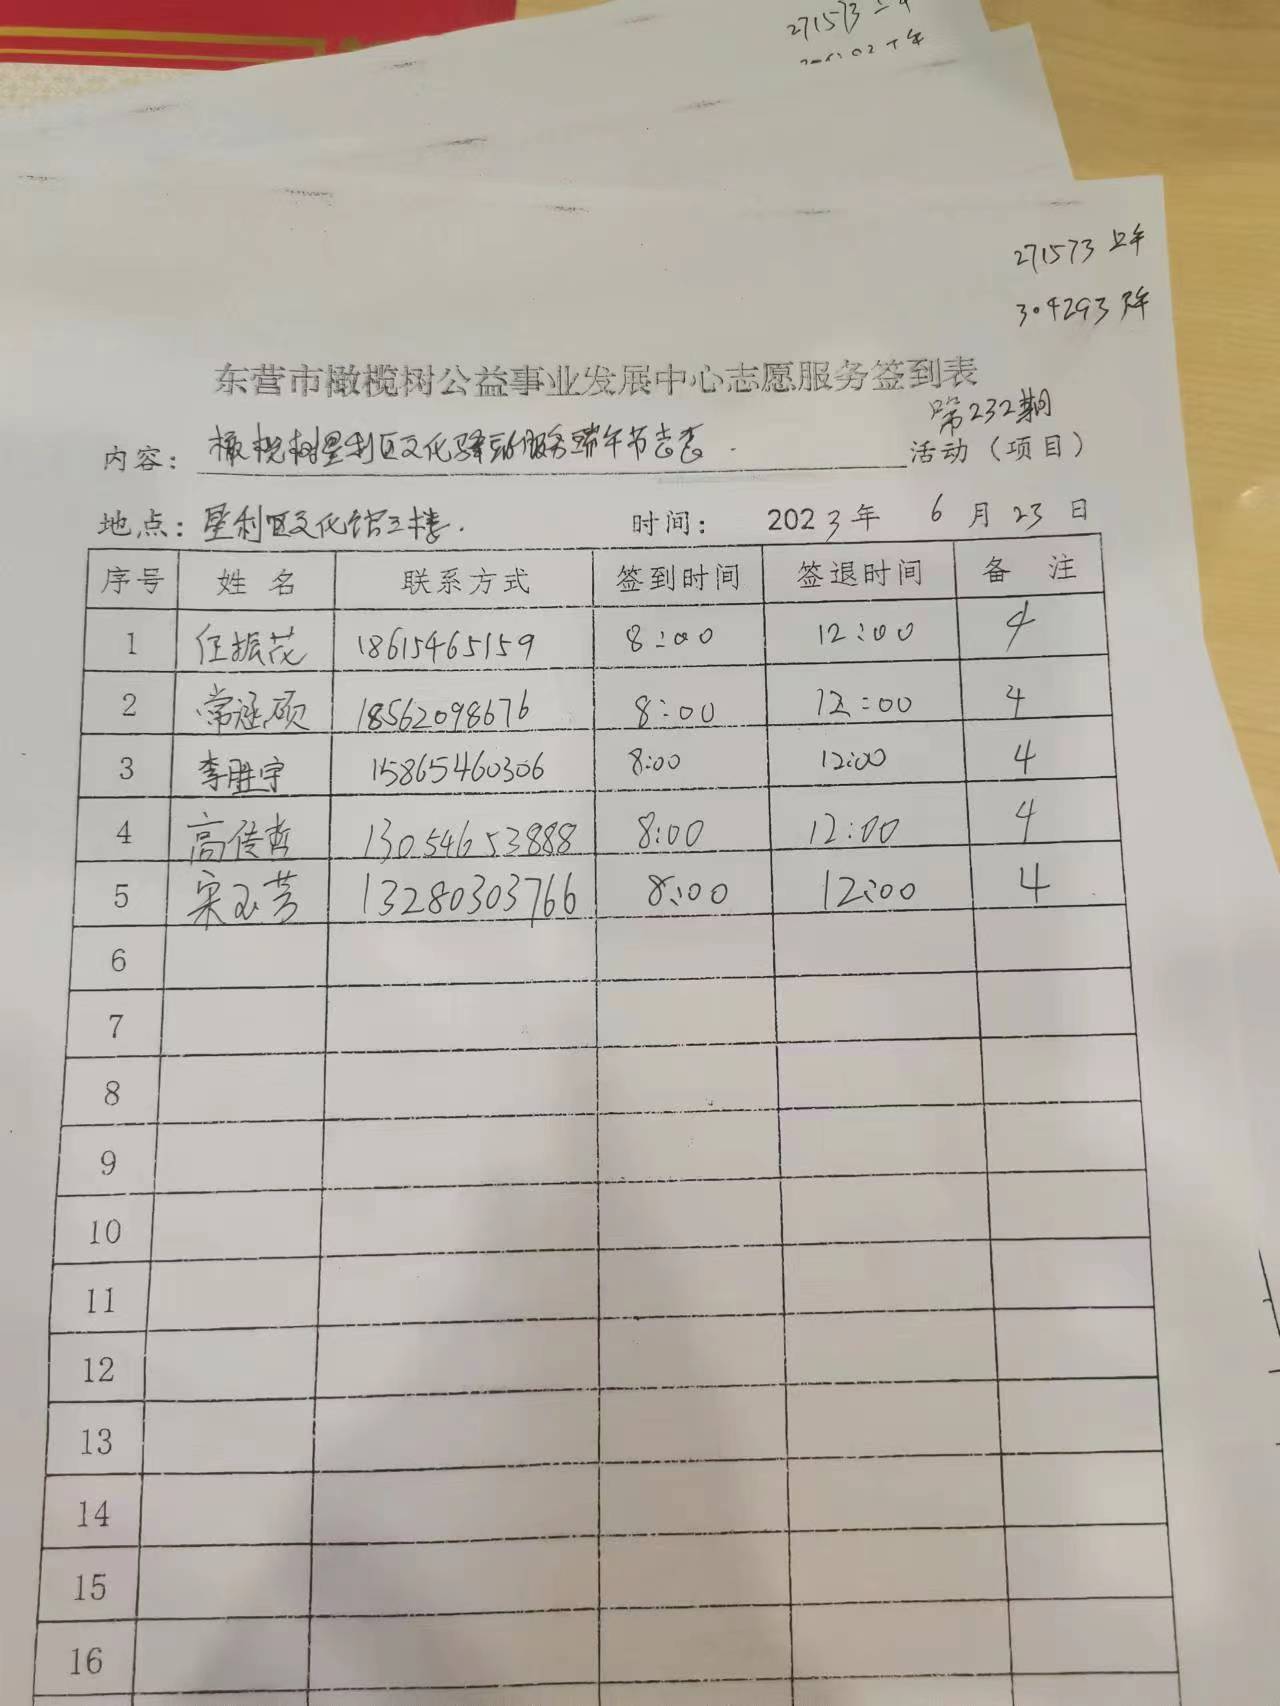 271573 上午
271573 上午
304293 下午
东营市橄榄树公益事业发展中心志愿服务签到表
第232期
内容: 橄榄树垦利区文化驿站服务端午节 活动（项目）
地点: 垦利区文化馆三楼. 时间: 2023年 6月23日
序号 姓名 联系方式 签到时间 签退时间 备 注
1 任振茂 18615465159 8:00 12:00 4
2 常涵硕 18562098676 8:00 12:00 4
3 李胜宇 15865460306 8:00 12:00 4
4 高传哲 13054653888 8:00 12:00 4
5 宋玉芳 13280303766 8:00 12:00 4
6
7
8
9
10
11
12
13
14
15
16